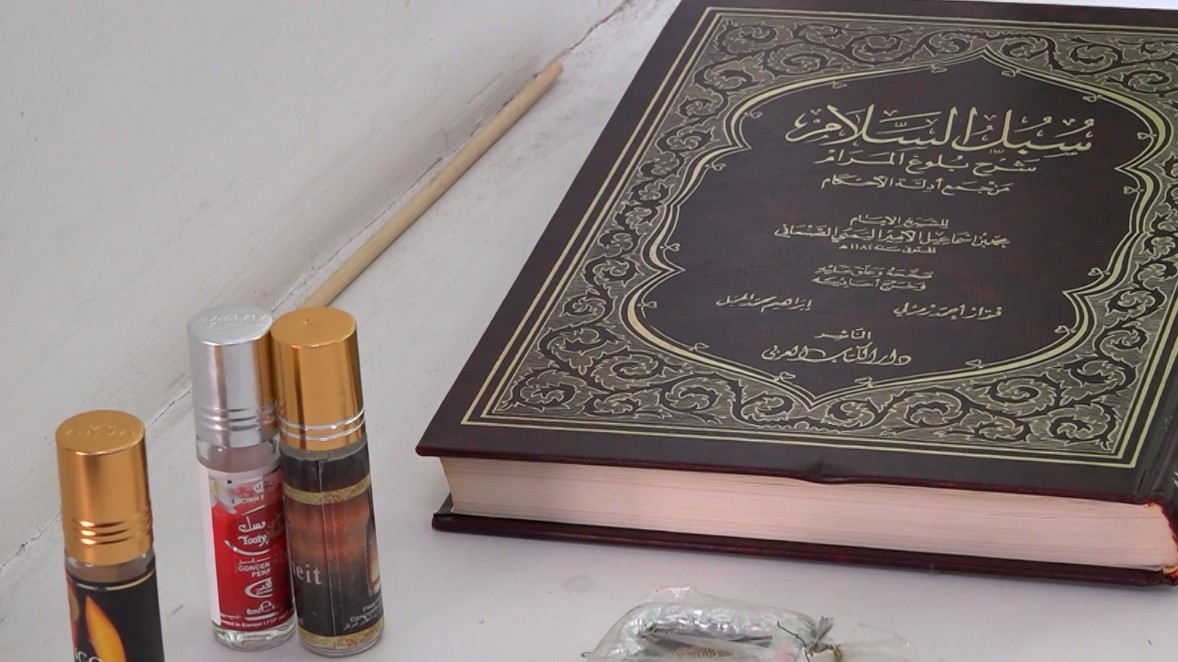 سُبُلُ السَّلَام
شَرْح بُلُوغ المَرَام
مِن جَمْع أَدِلَّة الأَحْكَام
للشيخ الإمام
محمد بن إسماعيل الأمير اليمني الصنعاني
المتوفى سنة ١١٨٢ هـ
صححه وعلق عليه
وخرج أحاديثه
فواز أحمد زمرلي
إبراهيم محمد الجمل
الناشر
دار الكتاب العربي
مسك
Tooty
CONCEN
PERF
6ml e
eit